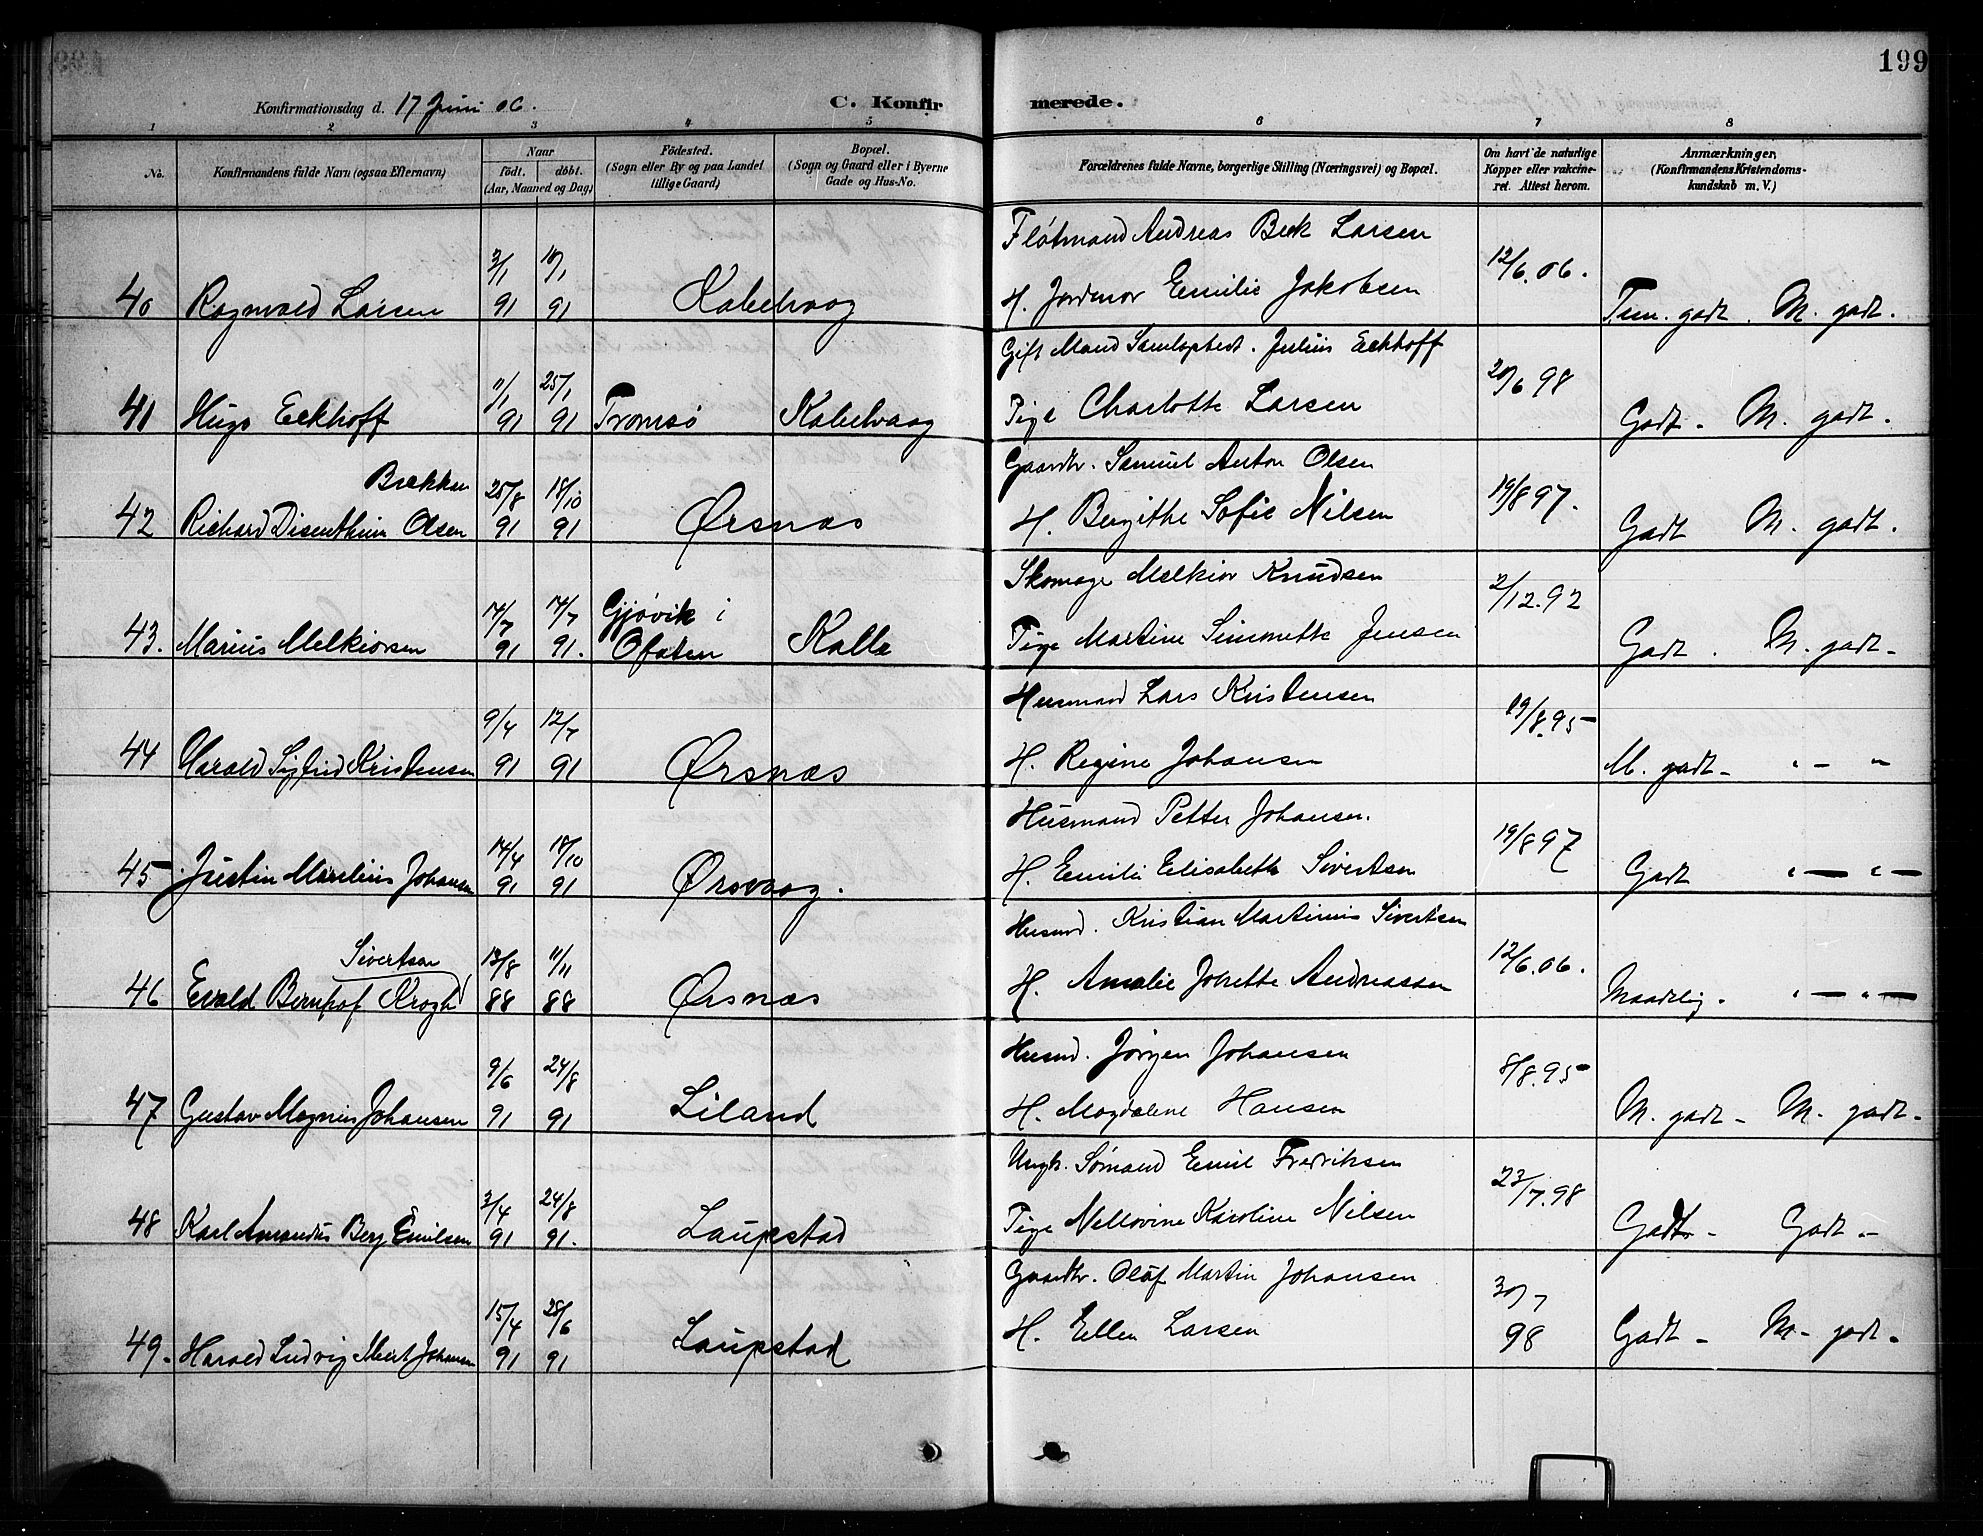 199
Konfirmationsdag d. 17 Juni 06. C. Konfirmerede.
1 2 3 4 5 6 7 8
No. Konfirmandens fulde Navn (ogsaa Efternavn) Naar født. døbt. (Aar, Maaned og Dag) Födested. (Sogn eller By og paa Landet tillige Gaard) Bopæl. (Sogn og Gaard eller i Byerne Gade og Hus-No. Forældrenes fulde Navne, borgerlige Stilling (Næringsvei) og Bopæl. Om havt de naturlige Kopper eller vakcineret. Attest herom. Anmærkninger. (Konfirmandens Kristendomskundskab m. V.)
Fløtmand Andreas Beck Larsen
40 Ragnvald Larsen 3/1 91 91 Kabelvaag H. Jordmor Emilie Jakobsen 12/6.06. Tem. godt. M. godt.
Gift Mand Julius Eckhoff
41 Hugo Eckhoff 11/1 91 25/1 91 Tromsø Kabelvaag Pige Charlotte Larsen 20/6 98 Godt. M. godt.
Brekken Gaardbr. Samuel Anton Olsen
42 Richard Disenthim Olsen 25/8 91 18/10 91 Ørsnæs H. Bergithe Sofie Nilsen 19/8 97. Godt M. godt.
Skomage Melkior Knudsen
43. Marius Melkiorsen 14/7 91 17/7 91. Gjøvik i Ofoten Kalle Pige Martine Simonette Jensen 2/12.92 Godt. M. godt.
Husmand Lars Kristensen
44 Harald Sigfrid Kristensen 9/4 91 12/7 91 Ørsnæs H. Regine Johansen 19/8.95 M. godt - " - "
Husmand Petter Johansen.
45 Justin Marelius Johansen 14/4 91 18/10 91 Ørsvaag. H. Emilie Elisabeth Sivertsen 19/8 97 Godt " — " —
Sivertsen Husmd. Kristian Martinus Sivertsen
46 Evald Bernhof Krogh 13/8 88 11/11 88 Ørsnæs H. Amalie Jonette Andreassen 12/6.06. Maadelig. " — " —
Husmd. Jørgen Johansen
47 Gustav Magnus Johansen 9/6 91 24/8 91 Liland H. Magdalene Hansen 8/8.95 M. godt - M. godt -
Ungk. Sømand Emil Fredriksen
48 Karl Amandus Berg Emilsen 3/4 91 24/8 91. Laupstad Pige Nellovine Karoline Nilsen 23/7.98 Godt - Godt -
Gaardbr. Olaf Martin Johansen
49. Harald Ludvig Johansen 15/4 91 28/6 91 Laupstad H. Ellen Larsen 30/7 98 Godt - M. godt.